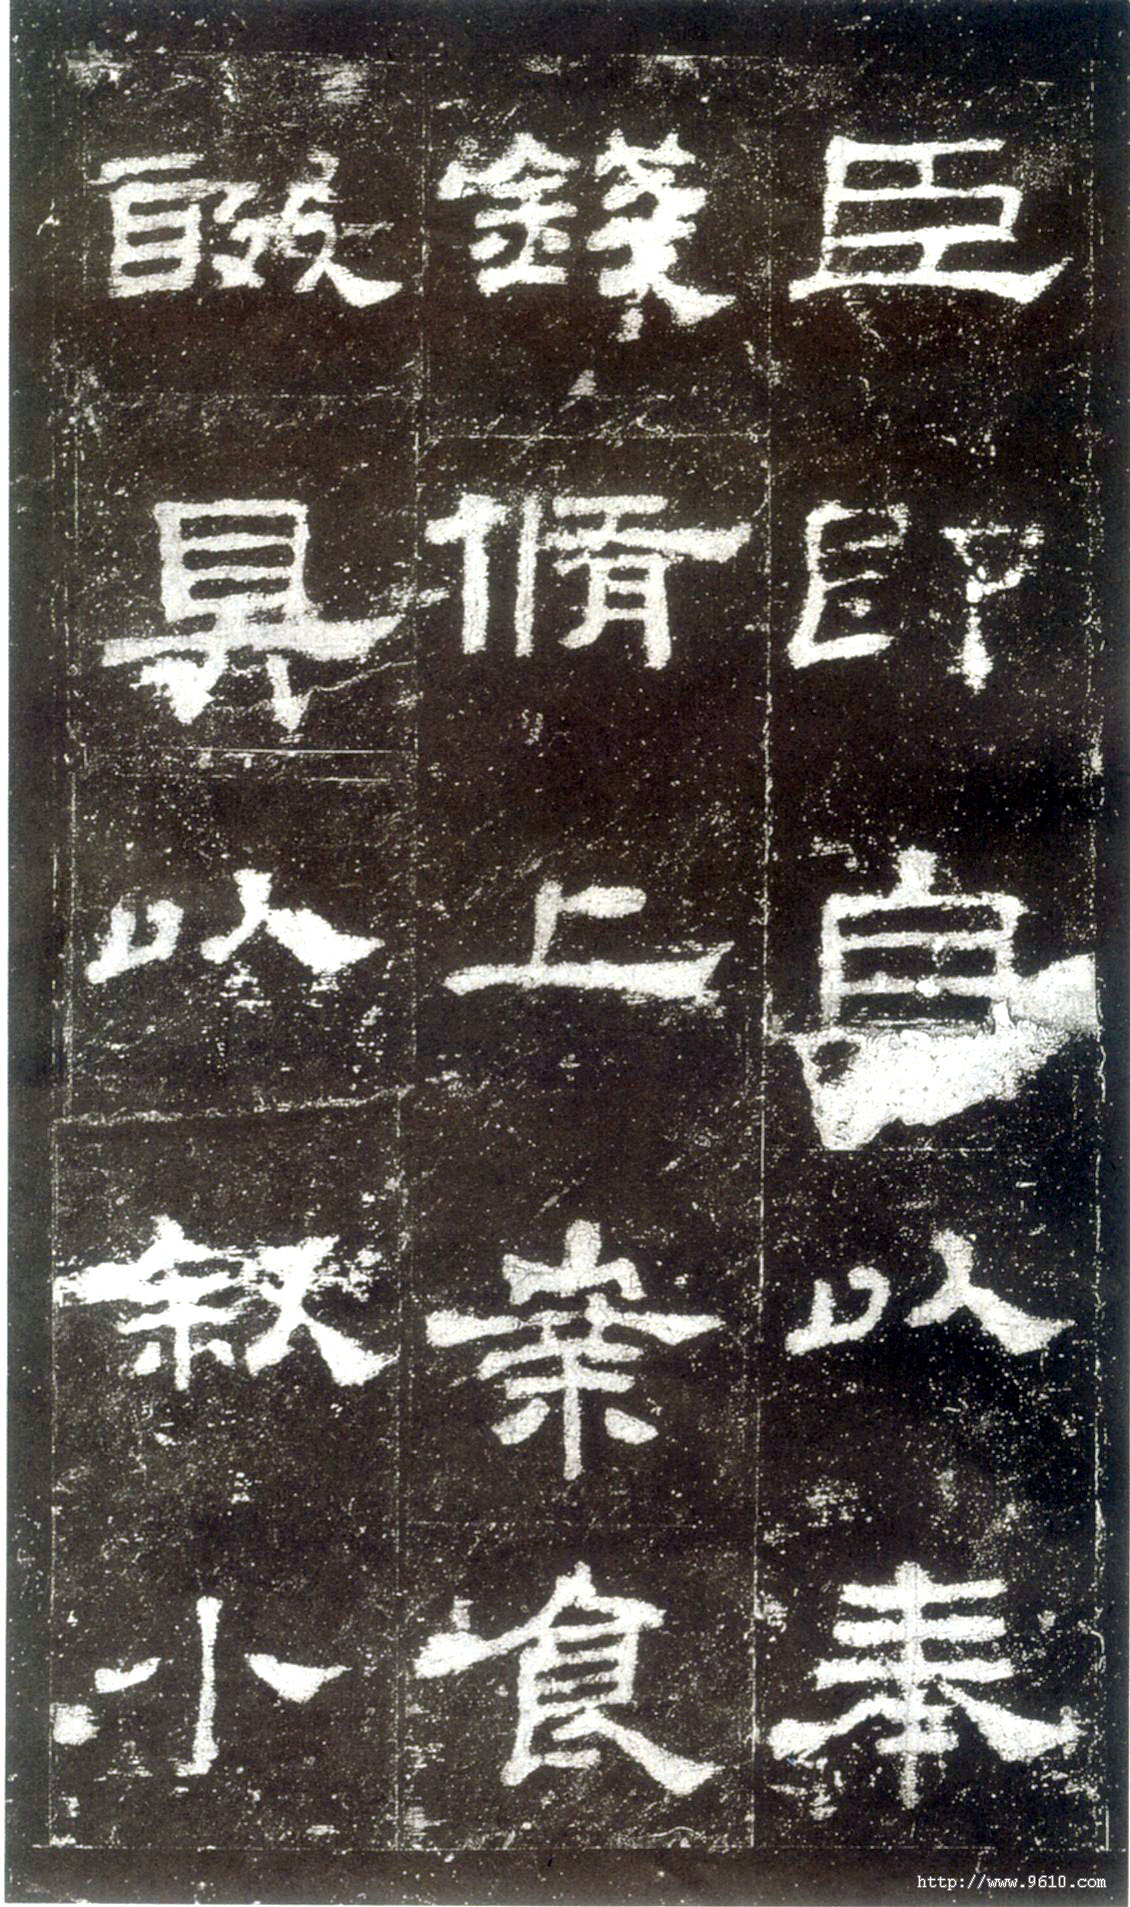 臣即自以奉
錢脩上案食
醊具以叙小
http://www.9610.com